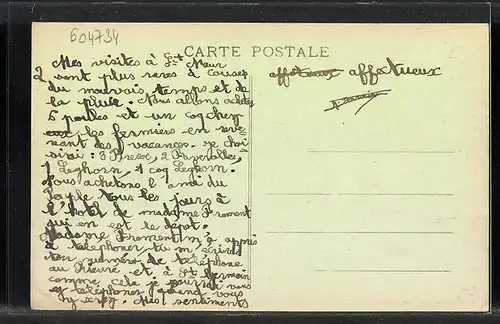 604734
CARTE POSTALE
2 Mes visites à St Maur
sont plus rares à cause
du mauvais temps et de
la pluie. Nous allons acheter
5 poules et un coq chez
les fermiers en reve-
nant des vacances. je choi-
sirai: 3 Bresse, 2 Faverolles,
1 Leghorn. 1 coq Leghorn.
Nous achetons l'ami du
Peuple tous les jours à
l'hôtel de madame Froment
qui en est le dépot.
Madame Froment m'a appris
à téléphoner. tu m'écriras
ton numéro de téléphone
au Nièvre et à St Germain
comme cela je pourrai vous
téléphoner quand vous
y serez. Mes sentiments
affectueux